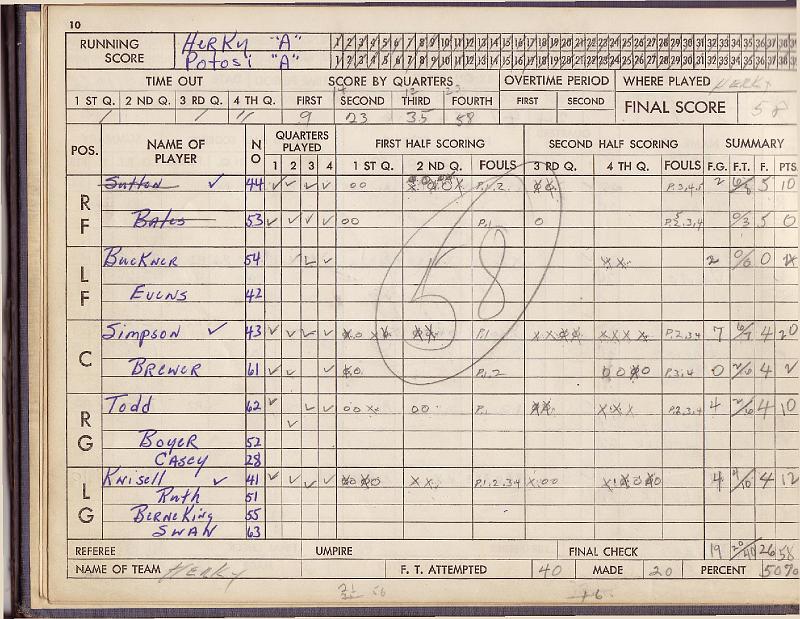 10
RUNNING SCORE HERKY "A" 1 2 3 4 5 6 7 8 9 10 11 12 13 14 15 16 17 18 19 20 21 22 23 24 25 26 27 28 29 30 31 32 33 34 35 36 37 38
Potosi "A" 1 2 3 4 5 6 7 8 9 10 11 12 13 14 15 16 17 18 19 20 21 22 23 24 25 26 27 28 29 30 31 32 33 34 35 36 37 38
TIME OUT SCORE BY QUARTERS OVERTIME PERIOD WHERE PLAYED HERKY
1 ST Q. 2 ND Q. 3 RD Q. 4 TH Q. FIRST SECOND THIRD FOURTH FIRST SECOND FINAL SCORE 58
9 23 35 58
POS. NAME OF PLAYER NO QUARTERS PLAYED FIRST HALF SCORING SECOND HALF SCORING SUMMARY
1 2 3 4 1 ST Q. 2 ND Q. FOULS 3 RD Q. 4 TH Q. FOULS F.G. F.T. F. PTS.
RF Sutton ✓ 44 P.1.2 P.3.4.5 2 6/8 5 10
Bates 53 P.1 0/3 5 0
58
LF BUCKNER 54 2 0/0 0
EVENS 42
C SIMPSON ✓ 43 P.1 P.2.3.4 7 6/7 4 20
BREWER 61 P.1.2 P.3.4 0 2/6 4 2
RG Todd 62 P.1 P.2.3.4 4 2/6 4 10
BOYER 52
CASEY 28
LG KNISELL ✓ 41 P.1.2.3.4 4 4/10 4 12
Ruth 51
BERNE KING 55
SWAN 63
REFEREE UMPIRE FINAL CHECK 19 20/40 26 58
NAME OF TEAM HERKY F. T. ATTEMPTED 40 MADE 20 PERCENT 50%